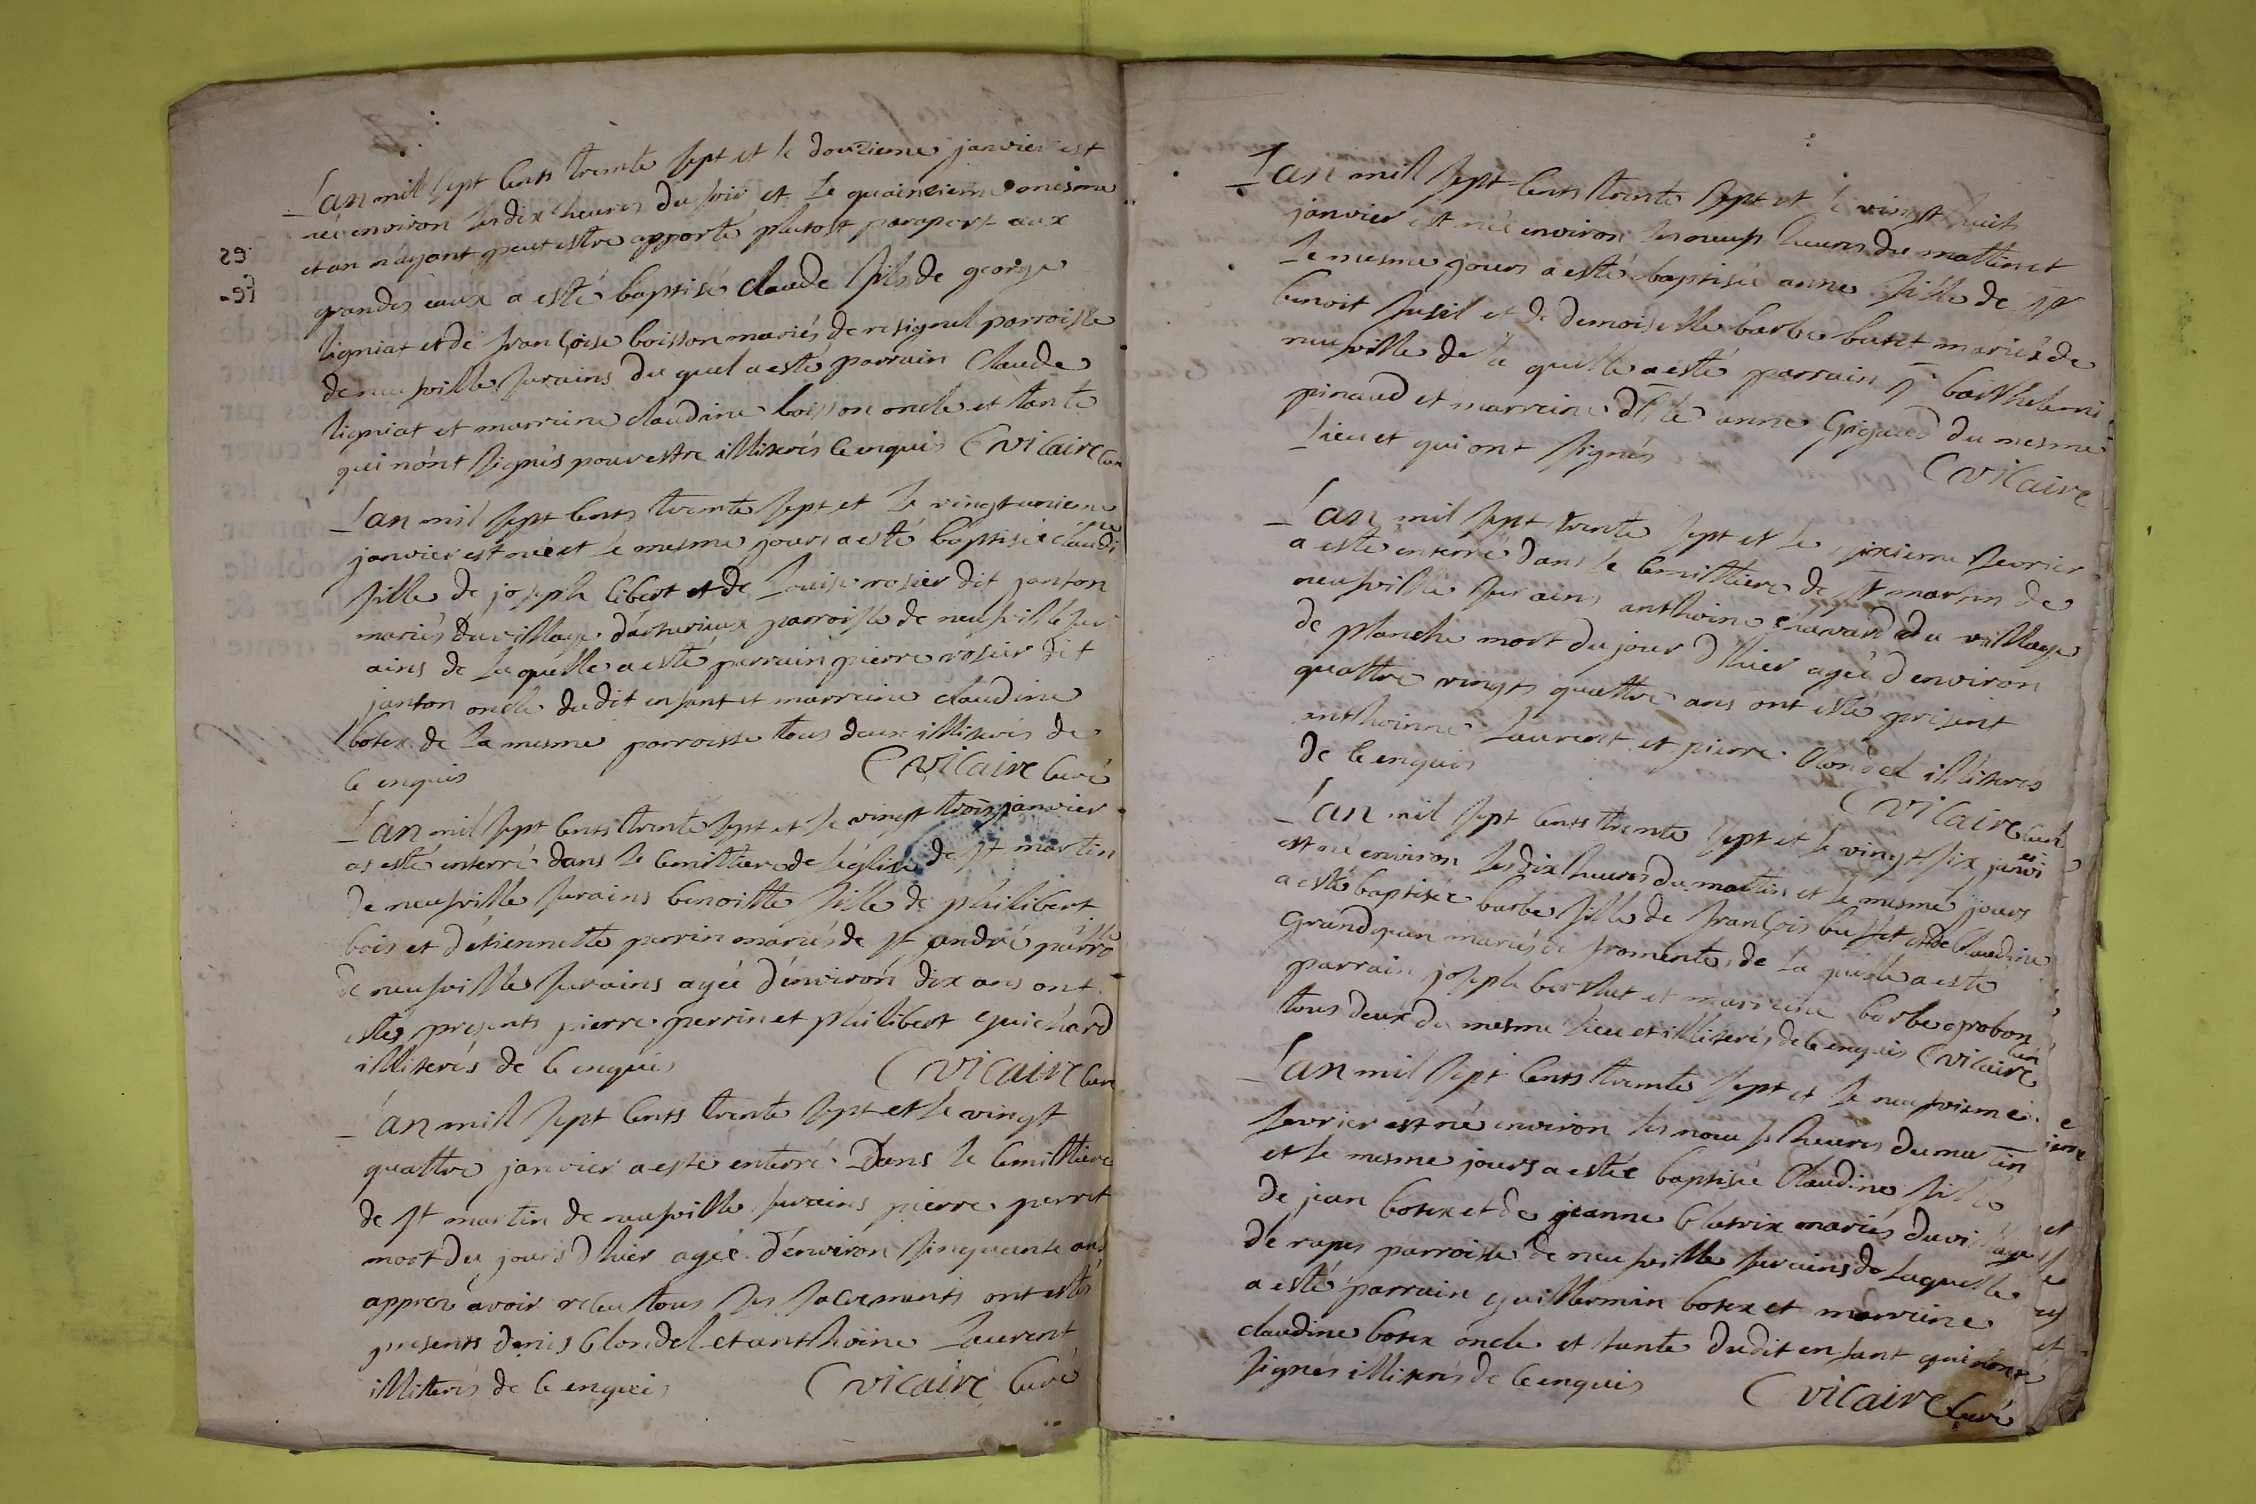 Lan mil sept cents trente sept et le douzieme janvier est
né environ les dix heures du soir et le quinzieme mesme
et an n'ayant peut estre apporté plutost parapert aux
grandes eaux a esté baptisé claude fils de george
ligniat et de françoise boisson mariés de resignel parroisse
de neufville surains du quel a esté parrain claude
ligniat et marraine claudine boisson oncle et tante
qui n'ont signés pour estre illiterés de enquis C vicaire curé
Lan mil sept cents trente sept et le vingt unieme
janvier est née et le mesme jours a esté baptisée claudine
fille de joseph libert et de Louise rosier dit janton
mariés du village parroisse de neufville sur
ains de laquelle a esté parrain pierre rosier dit
janton oncle du dit enfant et marraine claudine
botex de la mesme parroisse tous deux illiterés de
ce enquis C vicaire curé
Lan mil sept cents trente sept et le vingt trois janvier
as esté enterré dans le cemittiere de leglise de st martin
de neufville surains benoitte fille de philibert
bois et d'etiennette perrin mariés de st andré parroisse
de neufville surains agée d'environ dix ans ont
estes presents pierre perrin et philibert guichard
illiterés de ce enquis C vicaire curé
Lan mill sept cents trente sept et le vingt
quattre janvier a esté enterré Dans le cemittiere
de st martin de neufville surains pierre perret
mort du jours d'hier agée d'environ sinquante ans
apprex avoir receu tous ses sacrements ont estés
presents denis blondel et anthoine Laurent
illiterés de ce enquis C vicaire curé
Lan mill sept cents trente sept et le vingt huit
janvier est née environ les neufs heures du mattin et
le mesme jours a esté baptisée anne fille de sr
benoit fusil et de demoiselle barbe butet mariés de
neufville de la quelle a esté parrain sr barthelemi
pinaud et marraine dlle anne du mesme
Lieu et qui ont signés C vicaire
Lan mil sept trente sept et le sixieme fevrier
a esté enterré dans le cemittiere de st martin de
neufville surains anthoine chavard du village
de planche mort du jour d'hier agée d'environ
quattre vingts quattre ans ont esté present
anthoinne Laurent et pierre blondel illiterés
de ce enquis C vicaire curé
Lan mil sept cents trente sept et le vingt six janvier
est né environ les dix heures du mattin et le mesme jours
a esté baptisée barbe fille de françois buffet et de claudine
mariés de fromente de la quelle a esté
parrain joseph berthet et marraine barbe probon
tous deux du mesme lieu et illiterés de ce enquis C vicaire curé
Lan mil sept cents trente sept et le neufvieme
fevrier est né environ les neufs heures du matin
et le mesme jours a estée baptisée claudine fille
de jean botex et de jeanne mariés du village
de rapes parroisse de neufville surains de laquelle
a esté parrain guillermin botex et marraine
claudine botex oncle et tante du dit enfant qui n'ont
signés illiterés de ce enquis C vicaire curé